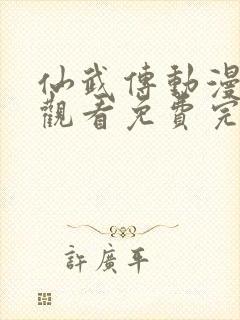 仙武傳動漫
觀看免費完
許廣平